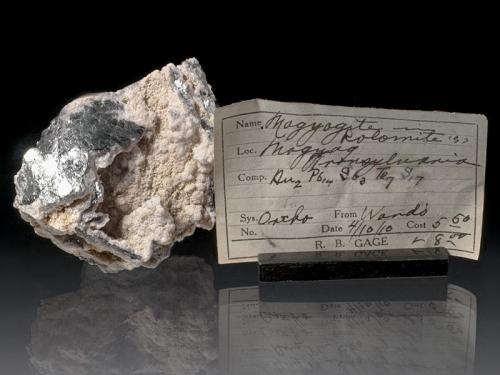 Name. Magyagite
Rolomite (?)
Loc. Magyag
Transylvania
Comp. Au2 Pb14 Sb3 Te7 S17
Sys. Ortho From Wards
No. Date 4/10/10 Cost 5.50
R. B. GAGE 8.00